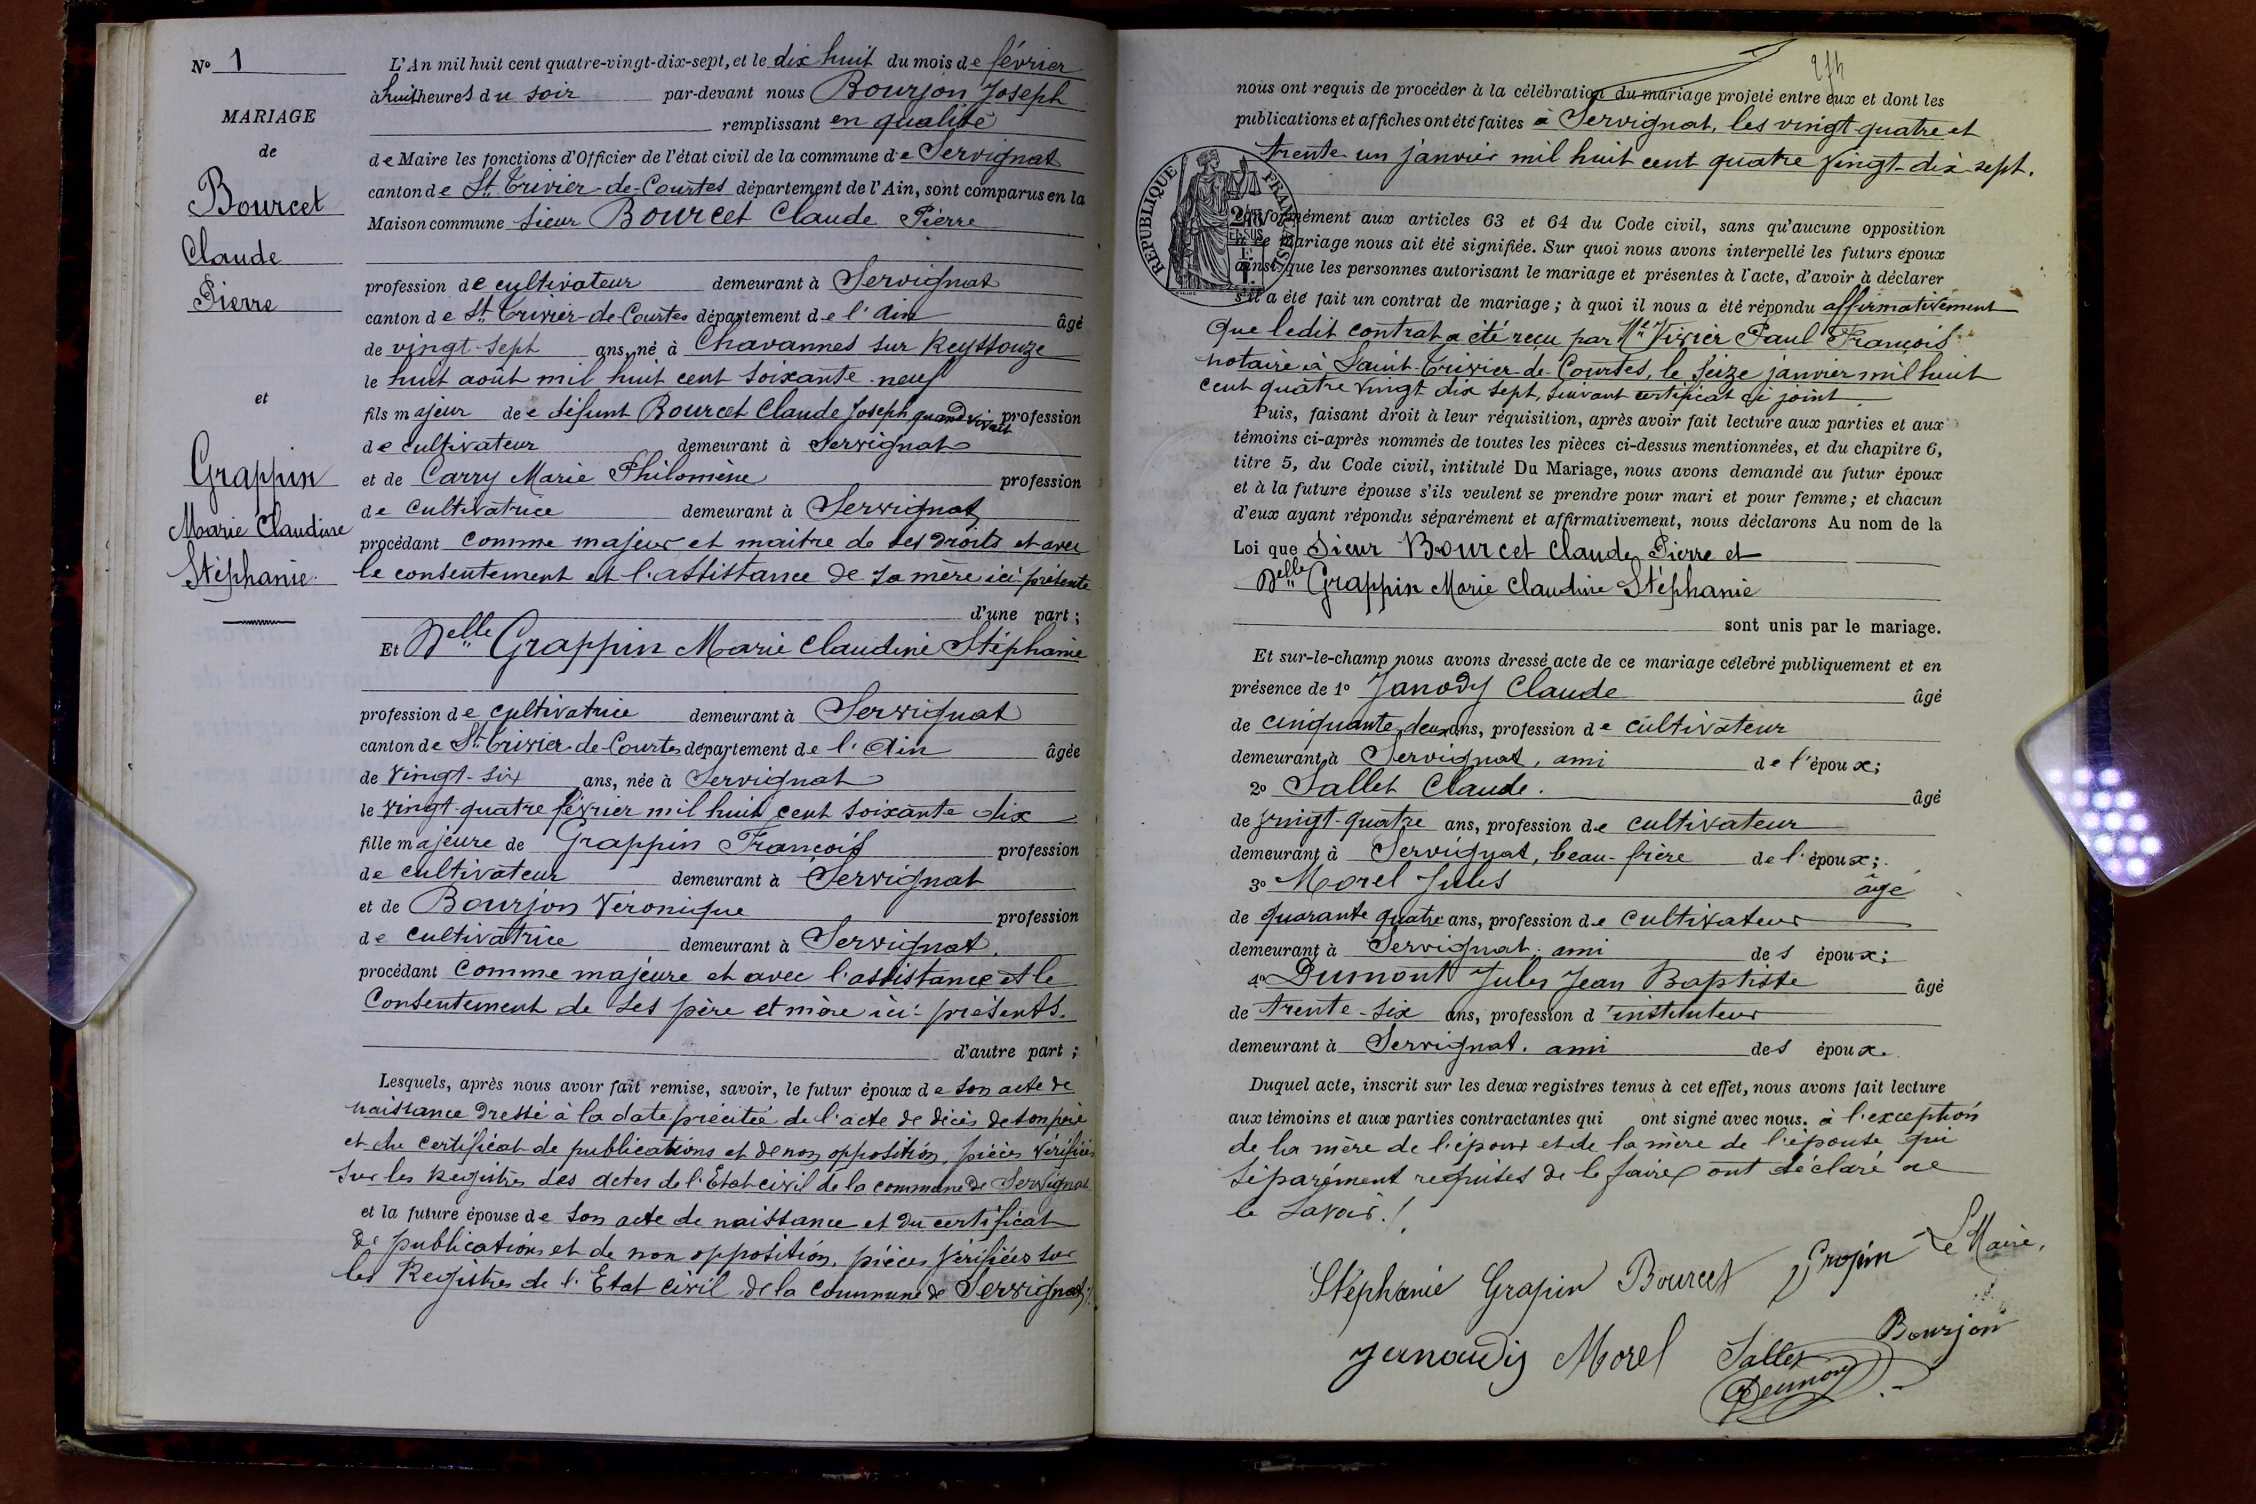 N° 1
MARIAGE
de
Bourcet
Claude
Pierre
et
Grappin
Marie Claudine
Stéphanie
L'An mil huit cent quatre-vingt-dix-sept, et le dix huit du mois de février
à huit heures du soir par-devant nous Bourjon Joseph
remplissant en qualité
de Maire les fonctions d'Officier de l'état civil de la commune de Servignat
canton de St Trivier-de-Courtes département de l'Ain, sont comparus en la
Maison commune sieur Bourcet Claude Pierre
profession de cultivateur demeurant à Servignat
canton de St Trivier-de-Courtes département de l'Ain âgé
de vingt-sept ans, né à Chavannes sur Reyssouze
le huit août mil huit cent soixante-neuf
fils majeur de défunt Bourcet Claude Joseph quand vivait profession
de cultivateur demeurant à Servignat
et de Carry Marie Philomène profession
de cultivatrice demeurant à Servignat
procédant comme majeur et maitre de ses droits et avec
le consentement et l'assistance de sa mère ici présente
d'une part ;
Et Delle Grappin Marie Claudine Stéphanie
profession de cultivatrice demeurant à Servignat
canton de St Trivier-de-Courtes département de l'Ain âgée
de vingt-six ans, née à Servignat
le vingt-quatre février mil huit cent soixante dix
fille majeure de Grappin François profession
de cultivateur demeurant à Servignat
et de Bourjon Véronique profession
de cultivatrice demeurant à Servignat.
procédant comme majeure et avec l'assistance et le
consentement de ses père et mère ici-présents.
d'autre part ;
Lesquels, après nous avoir fait remise, savoir, le futur époux de son acte de
naissance dressé à la date précitée de l'acte de décès de son père
et du certificat de publications et de non opposition, pièces vérifiées
sur les Registres des actes de l'Etat civil de la commune de Servignat
et la future épouse de son acte de naissance et du certificat
de publications et de non opposition, pièces vérifiées sur
les Registres de l'Etat civil de la commune de Servignat
274
nous ont requis de procéder à la célébration du mariage projeté entre eux et dont les
publications et affiches ont été faites à Servignat, les vingt-quatre et
trente un janvier mil huit cent quatre vingt-dix sept.
RÉPUBLIQUE FRANÇAISE
conformément aux articles 63 et 64 du Code civil, sans qu'aucune opposition
à ce mariage nous ait été signifiée. Sur quoi nous avons interpellé les futurs époux
ainsi que les personnes autorisant le mariage et présentes à l'acte, d'avoir à déclarer
s'il a été fait un contrat de mariage ; à quoi il nous a été répondu affirmativement
que ledit contrat a été reçu par Me Vivier Paul François
notaire à Saint-Trivier-de-Courtes, le seize janvier mil huit
cent quatre vingt dix sept, suivant certificat ci joint
Puis, faisant droit à leur réquisition, après avoir fait lecture aux parties et aux
témoins ci-après nommés de toutes les pièces ci-dessus mentionnées, et du chapitre 6,
titre 5, du Code civil, intitulé Du Mariage, nous avons demandé au futur époux
et à la future épouse s'ils veulent se prendre pour mari et pour femme ; et chacun
d'eux ayant répondu séparément et affirmativement, nous déclarons Au nom de la
Loi que Sieur Bourcet Claude Pierre et
Delle Grappin Marie Claudine Stéphanie
sont unis par le mariage.
Et sur-le-champ nous avons dressé acte de ce mariage célébré publiquement et en
présence de 1° Janody Claude âgé
de cinquante deux ans, profession de cultivateur
demeurant à Servignat, ami de l'époux ;
2° Sallet Claude. âgé
de vingt-quatre ans, profession de cultivateur
demeurant à Servignat, beau-frère de l'époux ;
3° Morel Jules âgé
de quarante quatre ans, profession de cultivateur
demeurant à Servignat, ami des époux ;
4° Dumont Jules Jean Baptiste âgé
de trente-six ans, profession d'instituteur
demeurant à Servignat. ami des époux.
Duquel acte, inscrit sur les deux registres tenus à cet effet, nous avons fait lecture
aux témoins et aux parties contractantes qui ont signé avec nous. à l'exception
de la mère de l'époux et de la mère de l'épouse qui
séparément requises de le faire ont déclaré ne
le savoir.
Stéphanie Grapin Bourcet Grapin Le Maire,
Janaudy Morel Sallet Bourjon
Dumont